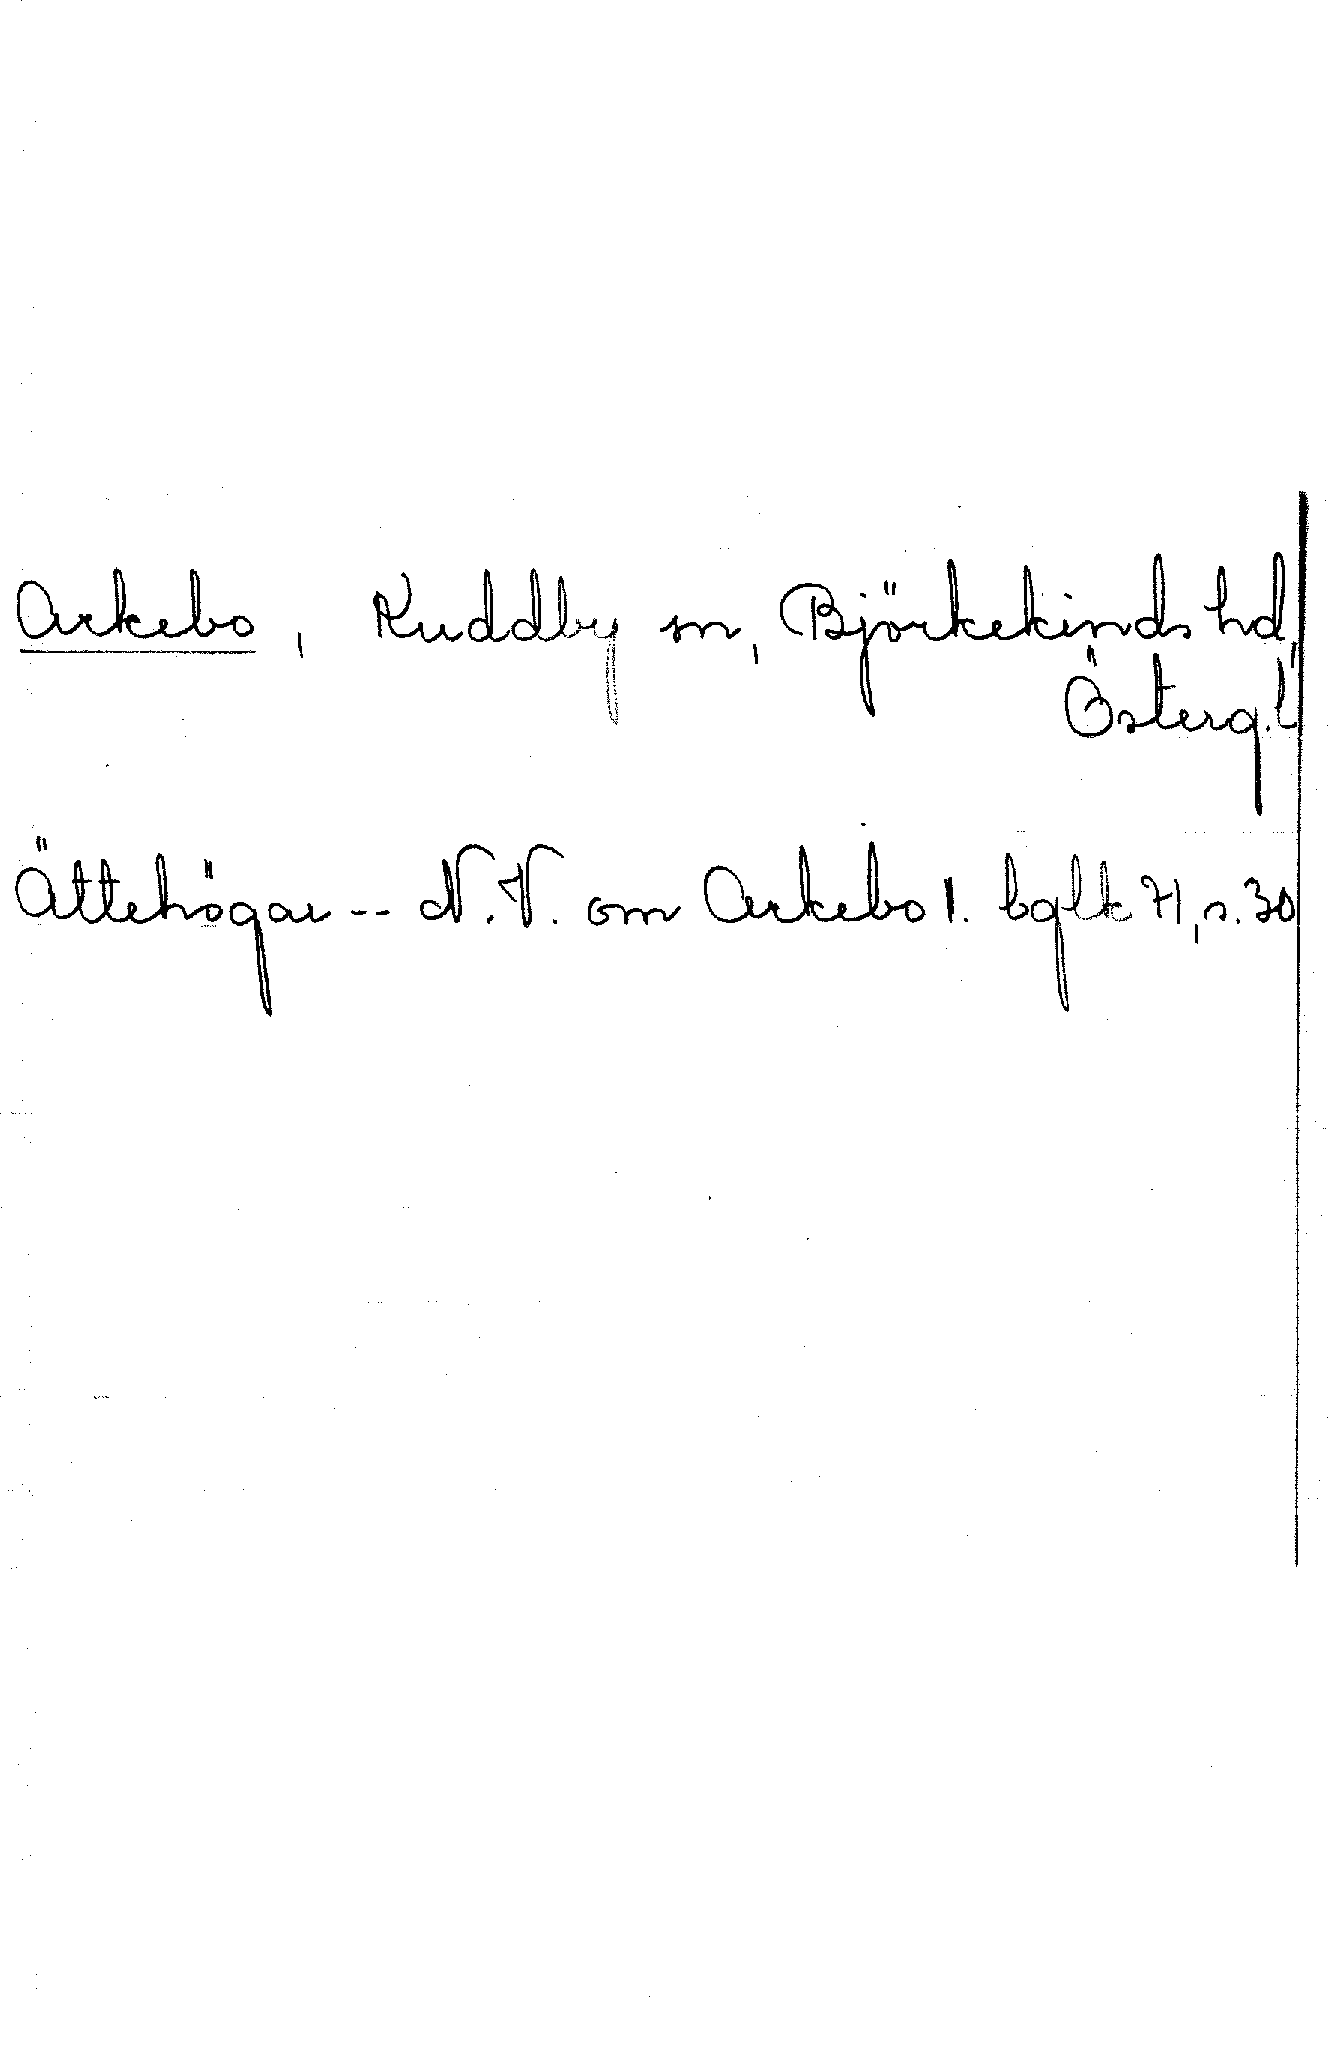 Arkebo, Kuddby sn, Björkekinds hd,
Österg.l
Ättehögar -- N.V. om Arkebo 1. bglk 71, s. 30